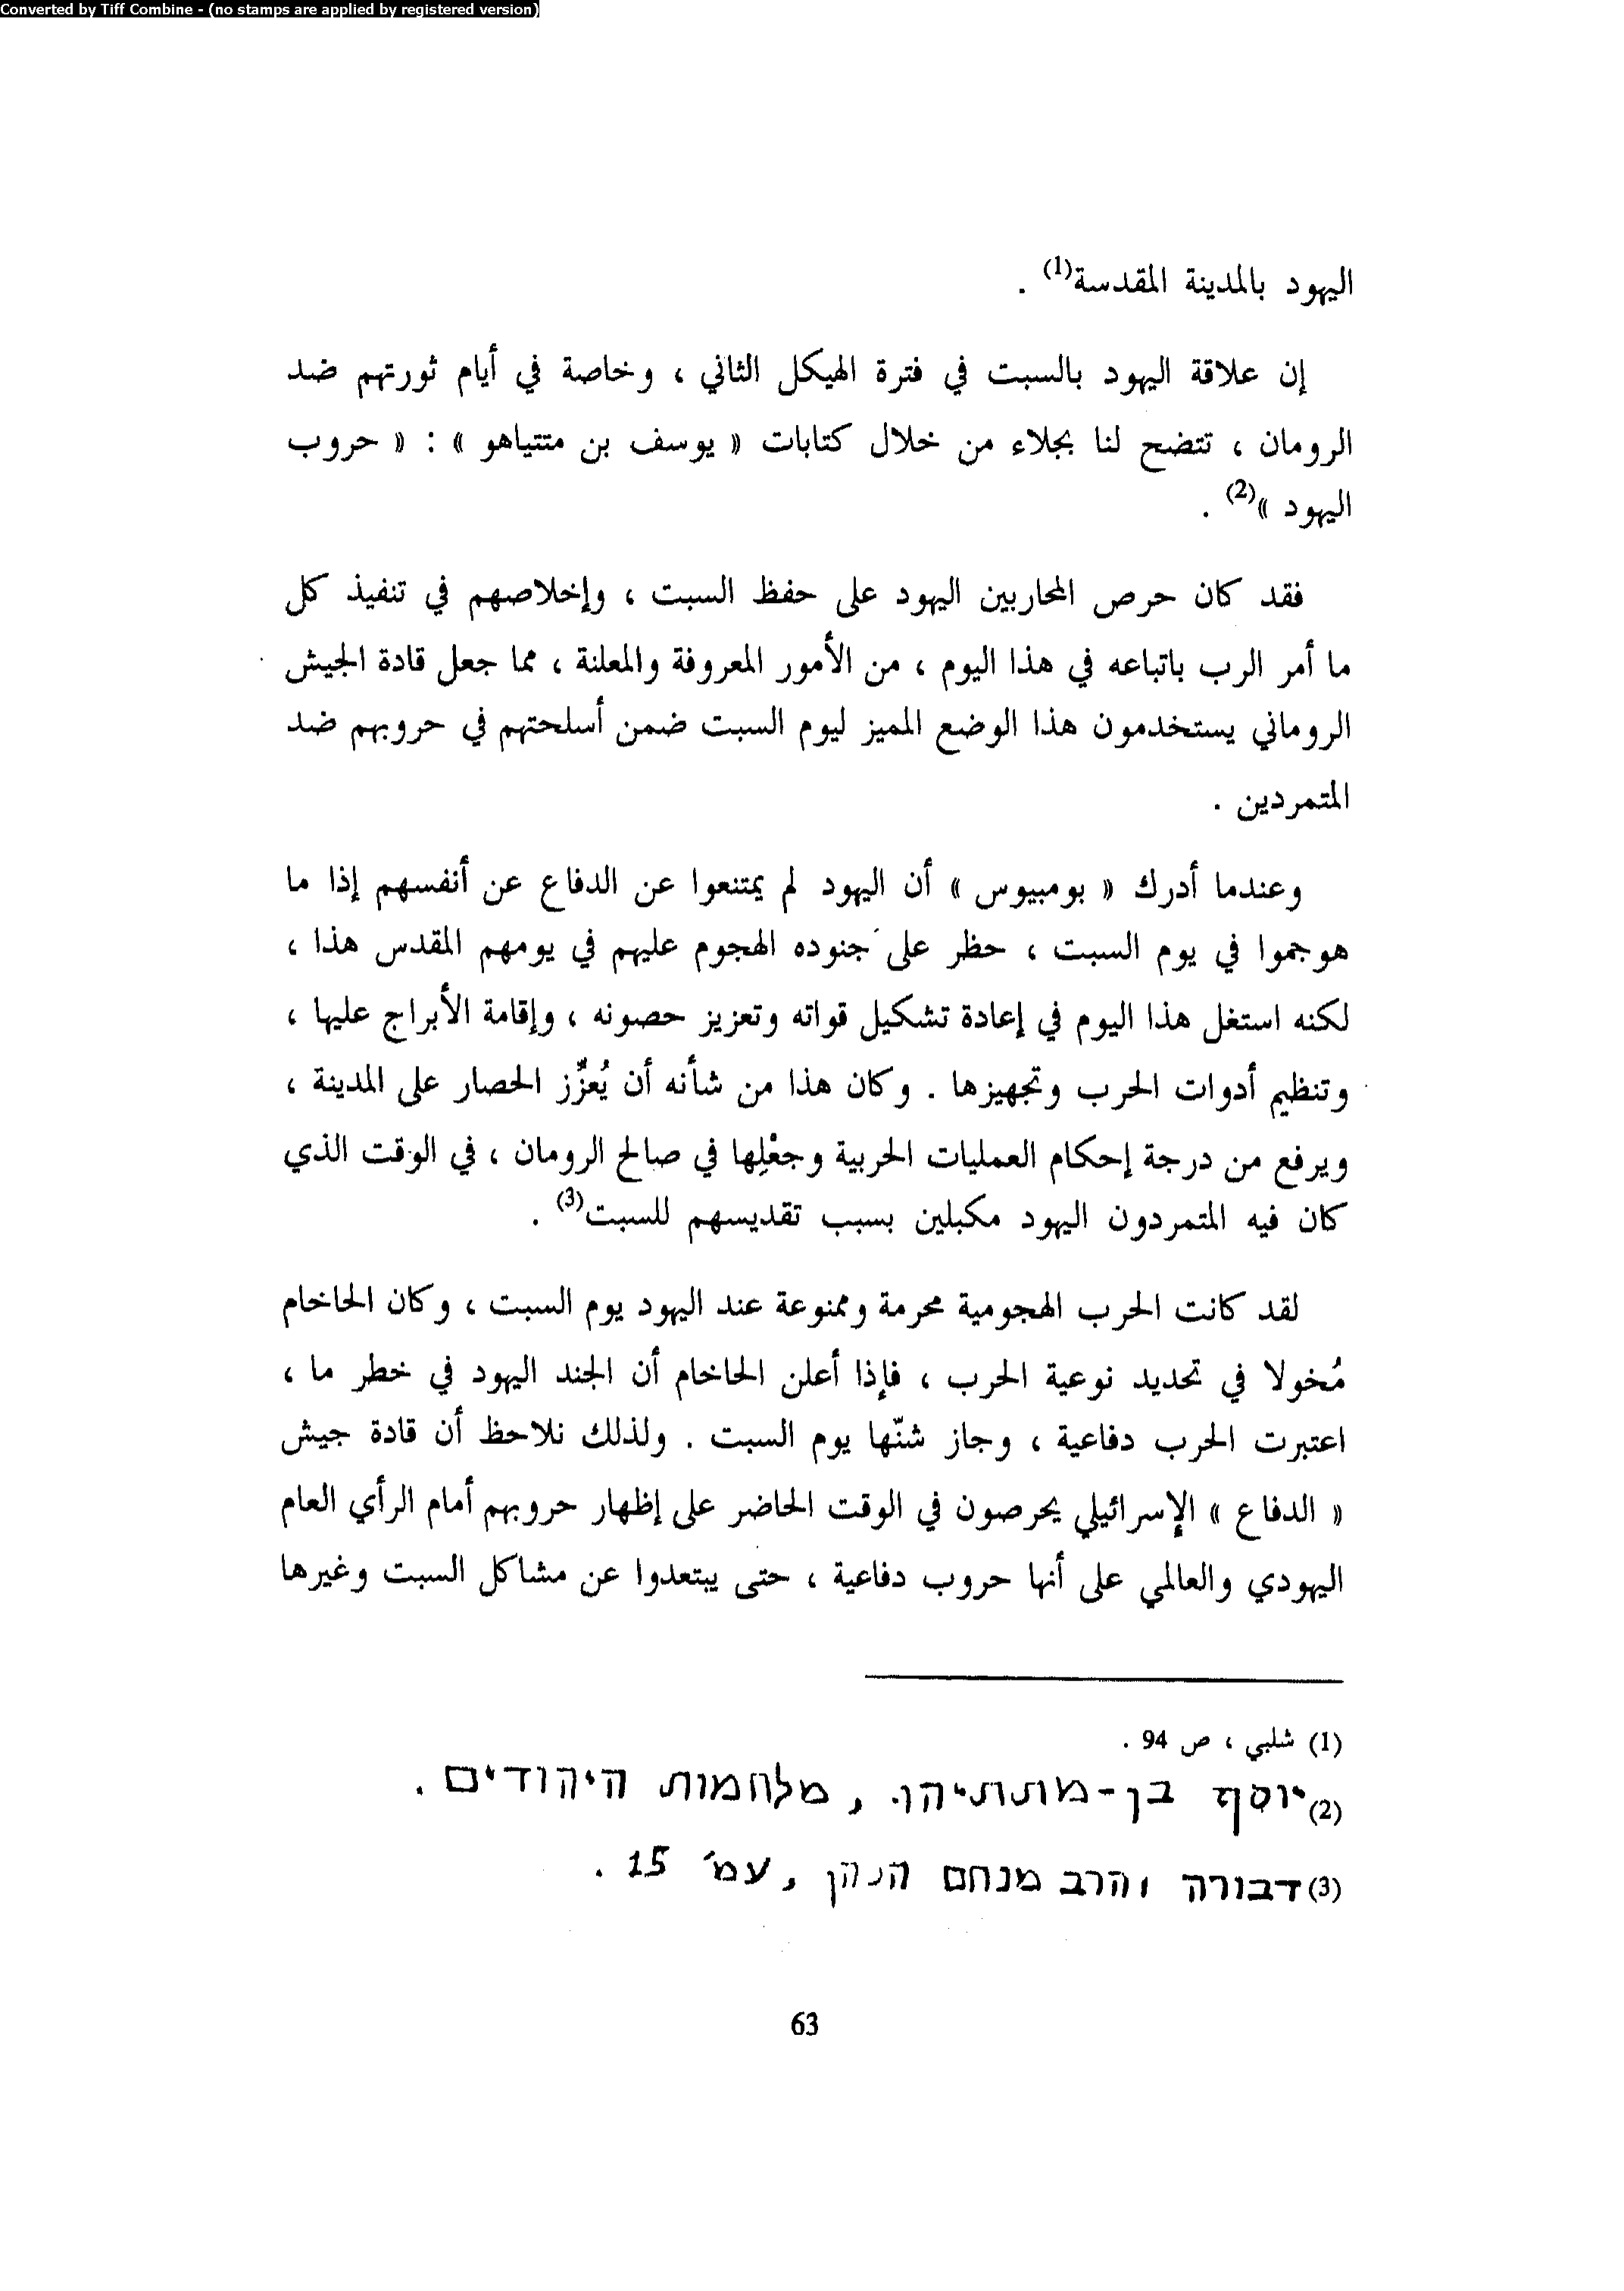 Converted by Tiff Combine - (no stamps are applied by registered version)
اليهود بالمدينة المقدسة(1) .
إن علاقة اليهود بالسبت في فترة الهيكل الثاني ، وخاصة في أيام ثورتهم ضد
الرومان ، تتضح لنا بجلاء من خلال كتابات « يوسف بن متتياهو » : « حروب
اليهود »(2) .
فقد كان حرص المحاربين اليهود على حفظ السبت ، وإخلاصهم في تنفيذ كل
ما أمر الرب باتباعه في هذا اليوم ، من الأمور المعروفة والمعلنة ، مما جعل قادة الجيش
الروماني يستخدمون هذا الوضع المميز ليوم السبت ضمن أسلحتهم في حروبهم ضد
المتمردين .
وعندما أدرك « بومبيوس » أن اليهود لم يمتنعوا عن الدفاع عن أنفسهم إذا ما
هوجموا في يوم السبت ، حظر على جنوده الهجوم عليهم في يومهم المقدس هذا ،
لكنه استغل هذا اليوم في إعادة تشكيل قواته وتعزيز حصونه ، وإقامة الأبراج عليها ،
وتنظيم أدوات الحرب وتجهيزها . وكان هذا من شأنه أن يُعزِّز الحصار على المدينة ،
ويرفع من درجة إحكام العمليات الحربية وجعْلِها في صالح الرومان ، في الوقت الذي
كان فيه المتمردون اليهود مكبلين بسبب تقديسهم للسبت(3) .
لقد كانت الحرب الهجومية محرمة وممنوعة عند اليهود يوم السبت ، وكان الحاخام
مُخولا في تحديد نوعية الحرب ، فإذا أعلن الحاخام أن الجند اليهود في خطر ما ،
اعتبرت الحرب دفاعية ، وجاز شنّها يوم السبت . ولذلك نلاحظ أن قادة جيش
« الدفاع » الإسرائيلي يحرصون في الوقت الحاضر على إظهار حروبهم أمام الرأي العام
اليهودي والعالمي على أنها حروب دفاعية ، حتى يبتعدوا عن مشاكل السبت وغيرها
(1) شلبي ، ص 94 .
(2) יוסף בן-מתתיהו , מלחמות היהודים .
(3) דבורה והרב מנחם הכהן , עמ' 15 .
63